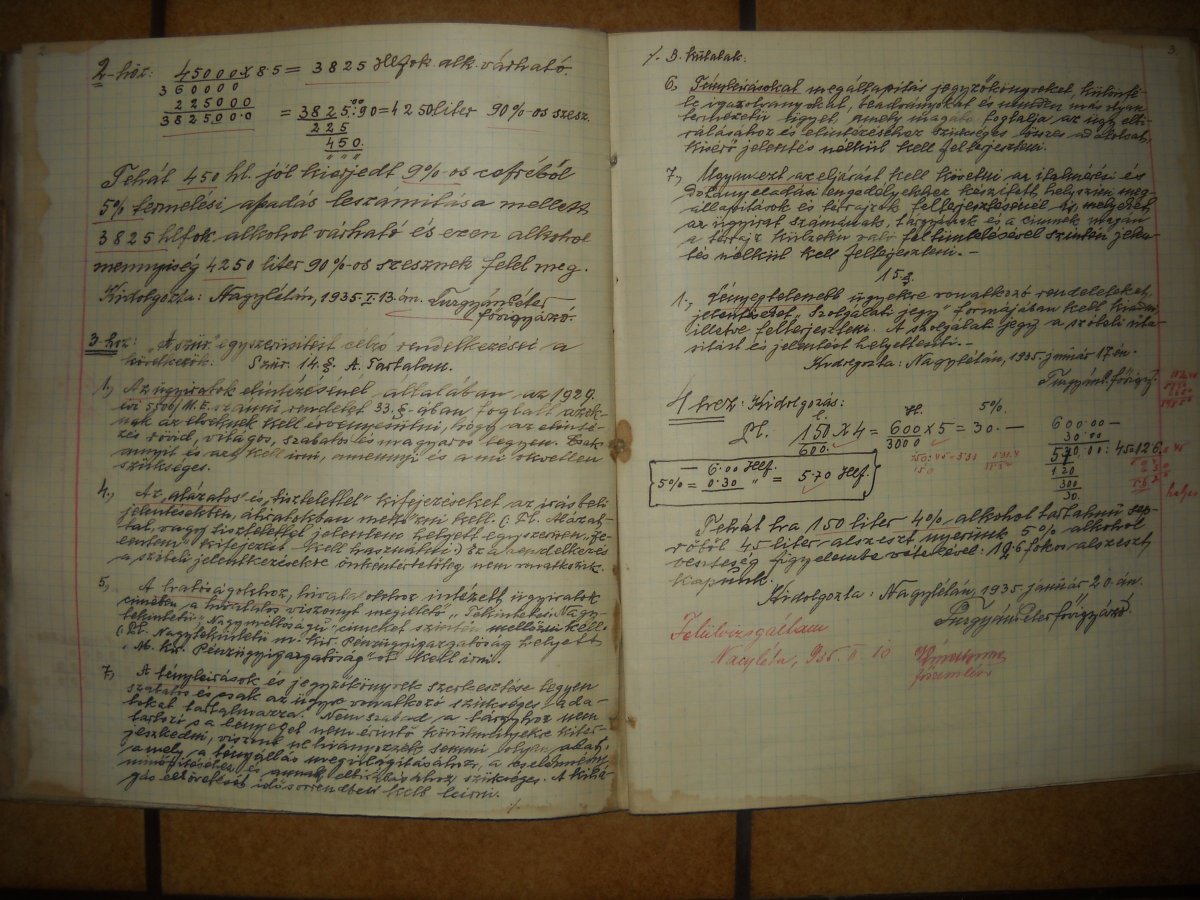 2
2-höz: 45000 x 85 = 3825 Hlfok alk. várható.
360000
225000 = 3825.00:90 = 4250 liter 90%-os szesz.
3825000 225
450.
" " "
Tehát 450 hl. jól kierjedt 9%-os cefréből
5% termelési apadás leszámítása mellett
3825 hlfok alkohol várható és ezen alkohol
mennyiség 4250 liter 90%-os szesznek felel meg.
Kidolgozta: Nagylétán, 1935. I. 13.-án. Turgyán Péter
fővigyázó.
3 hoz: „A szür." egyszerűsítést célzó rendelkezései a
következők. Szür. 14.§. A. Tartalom.
1., Az ügyiratok elintézésénél általában az 1929.
évi 5500/M.E. számú rendelet 33. §-ában foglalt azok-
nak az elveknek kell érvényesülni, hogy az elinté-
zés rövid, világos, szabatos és magyaros legyen. Csak
annyit és azt kell írni, amennyi és a mi okvetlen
szükséges.
4., Az „alázatos" és „tisztelettel" kifejezéseket az írásbeli
jelentésekben, átiratokban mellőzni kell. (Pl. Alázat-
tal, vagy tisztelettel jelentem helyett egyszerűen „je-
lentem" kifejezést kell használni.) Ez a rendelkezés
a szóbeli jelentkezésekre önkéntértetőleg nem vonatkozik.
5., A hatóságokhoz, hivatalokhoz intézett ügyiratok
címében a hivatalos viszonyt megillető „Tekintetes, Nagy-
tekintetü, Nagyméltóságú" címeket szintén mellőzni kell.
(Pl. Nagytekintetü m. kir. Pénzügyigazgatóság helyett
„M. kir. Pénzügyigazgatóság"-ot kell írni.
7., A tényleírások és jegyzőkönyvek szerkesztése legyen
szabatos és csak az ügyre vonatkozó szükséges ada-
tokat tartalmazza. Nem szabad a tárgyhoz nem
tartozó s a lényeget nem érintő körülményekre kiter-
jeszkedni, viszont ne hiányozzék semmi olyan adat,
amely a tényállás megvilágításához, a cselekmény
minősítéséhez és annak elbírálásához szükséges. A kihá-
gás elkövetését idősorrendben kell leírni.
./.
3.
./. B. Külalak.
6., Tényleírásokat megállapítás jegyzőkönyveket, különfé-
le igazolványokat, beadványokat és minden más olyan
természetü ügyet, amely magába foglalja az ügy elbí-
rálásához és elintézéséhez szükséges összes adatokat,
kísérő jelentés nélkül kell felterjeszteni.
7., Ugyanezt az eljárást kell követni az italmérési és
dohányeladási engedélyekhez készített helyszíni meg-
állapítások és térrajzok felterjesztésénél is, melyeket
az ügyirat számának, tárgyának és a címnek magán
a térrajz külzetén való feltüntetésével szintén jelen-
tés nélkül kell felterjeszteni. —
15 §.
1., Lényegtelenebb ügyekre vonatkozó rendeleteket,
jelentéseket „Szolgálati jegy" formájában kell kiadni
illetve felterjeszteni. A szolgálati jegy a szóbeli uta-
sítást és jelentést helyettesíti. —
Kidolgozta: Nagylétán, 1935. január 17-én.
Turgyán P. fővigy.
4 hez: Kidolgozás:
l. Hl. 5%.
Pl. 150 x 4 = 600 x 5 = 30. —
600. 3000
600.00 —
30.00
570.00 : 45 = 12.6
120
300
30.
— 6.00 Hlf.
5% = 0.30 " = 5.70 Hlf.
helyes
Tehát ha 150 liter 4% alkohol tartalmú sep-
rőből 45 liter alszeszt nyerünk 5% alkohol
veszteség figyelembe vételével: 12.6 fokos alszeszt
kapunk.
Kidolgozta: Nagylétán, 1935. január 20.-án.
Turgyán Péter fővigyázó.
Felülvizsgáltam
Nagyléta, 935. II. 10